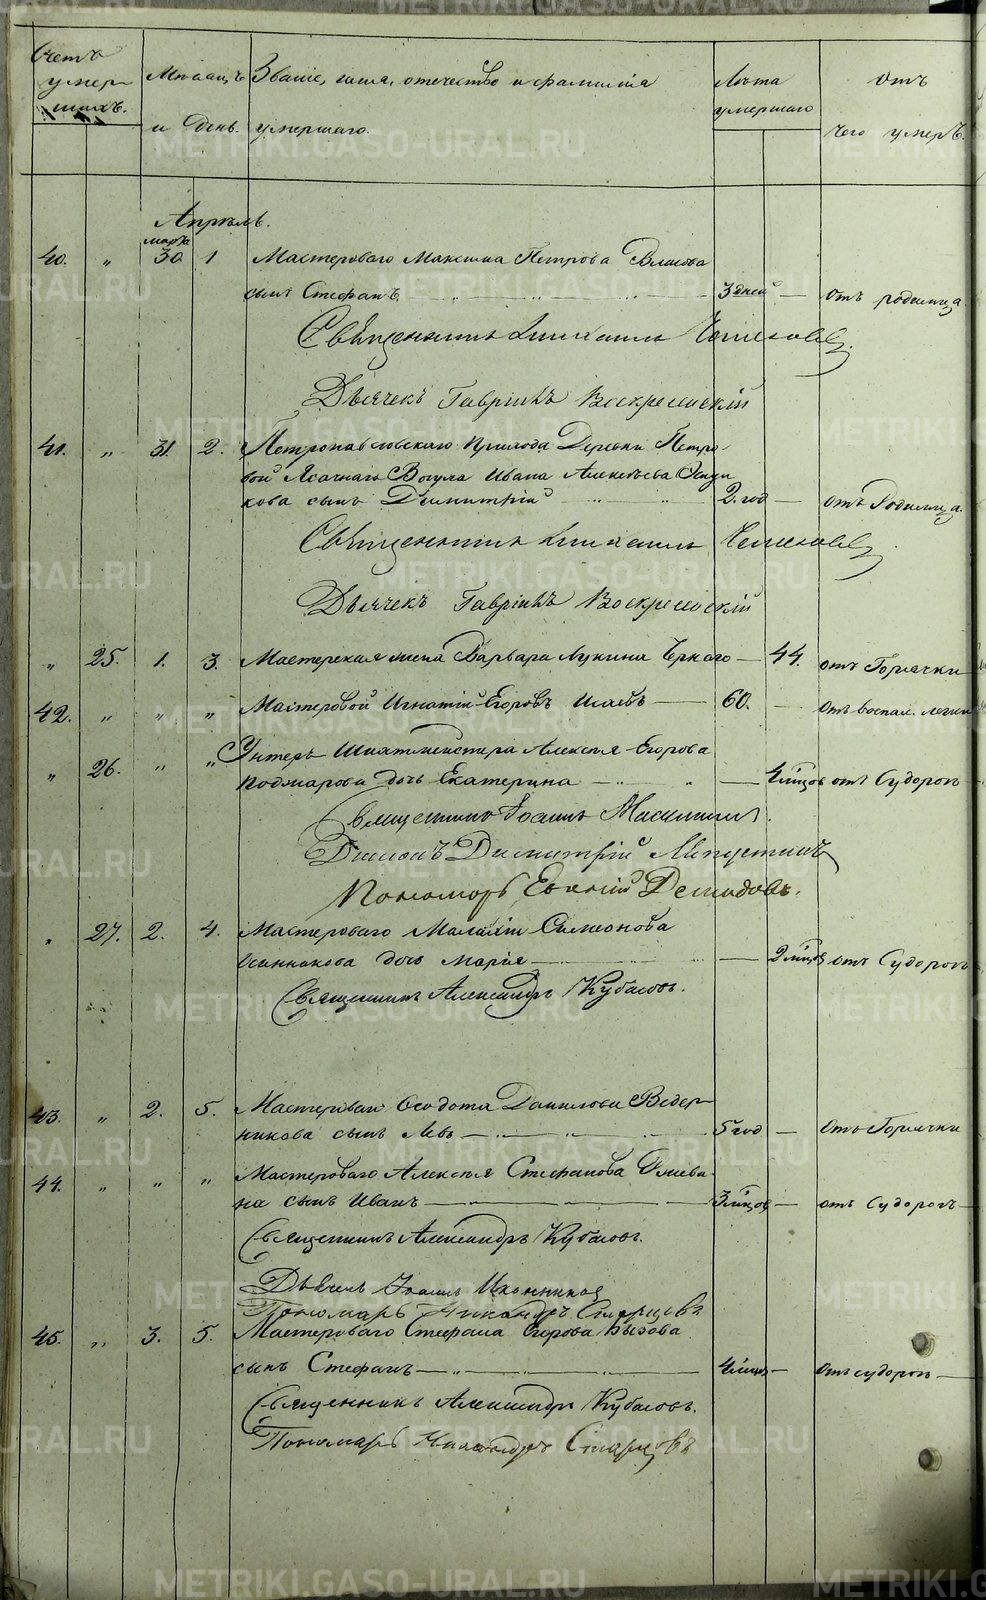 Счетъ умер-шихъ.
Мѣсяцъ и день.
Званіе, имя, отечество и фамилія умершаго.
Лѣта умершаго
Отъ чего умеръ.
Апрѣль.
марта
40. „ 30 1 Мастероваго Максима Петрова Власова
сынъ Стефанъ 3 дней — отъ родимца.
Священникъ Михаилъ
Дьячекъ Гавріилъ Воскресенскій
41. „ 31. 2. Петропавловскаго прихода Деревни Петро-
вой Ясачнаго Вогула Ивана Алексѣева
кова сынъ Димитрій 2. год — отъ Родимца.
Священникъ Михаилъ
Дьячекъ Гавріилъ Воскресенскій
„ 25. 1. 3. Мастерская жена Варвара Лукина — 44. отъ Горячки
42. „ „ „ Мастеровой Игнатій Егоровъ — 60. — отъ воспал. легких
„ 26. „ „ Унтеръ Шихтмейстера Алексѣя Егорова
Поджарова дочь Екатерина — 4 мѣсцовъ отъ Судорогъ
Священникъ Іоаннъ
Діаконъ Димитрій
Пономарь Евгеній Демидовъ.
„ 27. 2. 4. Мастероваго Малахіи Симеонова
дочь Марія — 2 мѣсцъ отъ Судорогъ
Священникъ Александръ Кубасовъ.
43. „ 2. 5. Мастероваго Ѳеодота Данилова Ведер-
никова сынъ Левъ — 5 год — отъ Горячки
44. „ „ „ Мастероваго Алексѣя Стефанова
на сынъ Иванъ — 3 мѣсцовъ — отъ Судорогъ —
Священникъ Александръ Кубасовъ.
Дьячекъ Іоаннъ Иконниковъ
Пономарь Никандръ Старцовъ
45. „ 3. 5. Мастероваго Стефана Егорова Быкова
сынъ Стефанъ — 4 мѣсц — отъ судорогъ —
Священникъ Александръ Кубасовъ.
Пономарь Никандръ Старцовъ
METRIKI.GASO-URAL.RU